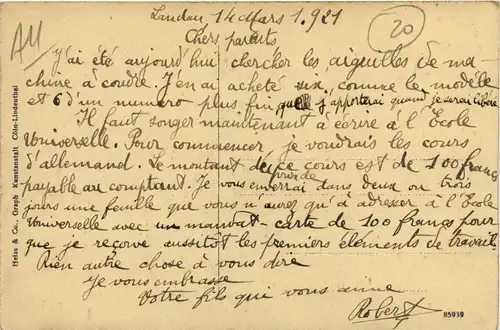 Landau 14 Mars 1.921
20
Chers parents
J'ai été aujourd'hui chercher les aiguilles de ma-
chine à coudre. J'en ai acheté six, comme le modèle
et 6 d'un numéro plus fin, que j'apporterai quand je serai libéré
Il faut songer maintenant à écrire à l'École
Universelle. Pour commencer je voudrais les cours
d'allemand. Le montant de ce cours est de 100 francs
payable au comptant. Je vous enverrai dans deux ou trois
jours une feuille que vous n'aurez qu'à adresser à l'École
Universelle avec un mandat-carte de 100 francs pour
que je reçoive aussitôt les premiers éléments de travail.
Rien autre chose à vous dire
Je vous embrasse
Votre fils qui vous aime
Robert
85939
Heiss & Co., Graph. Kunstanstalt Cöln-Lindenthal